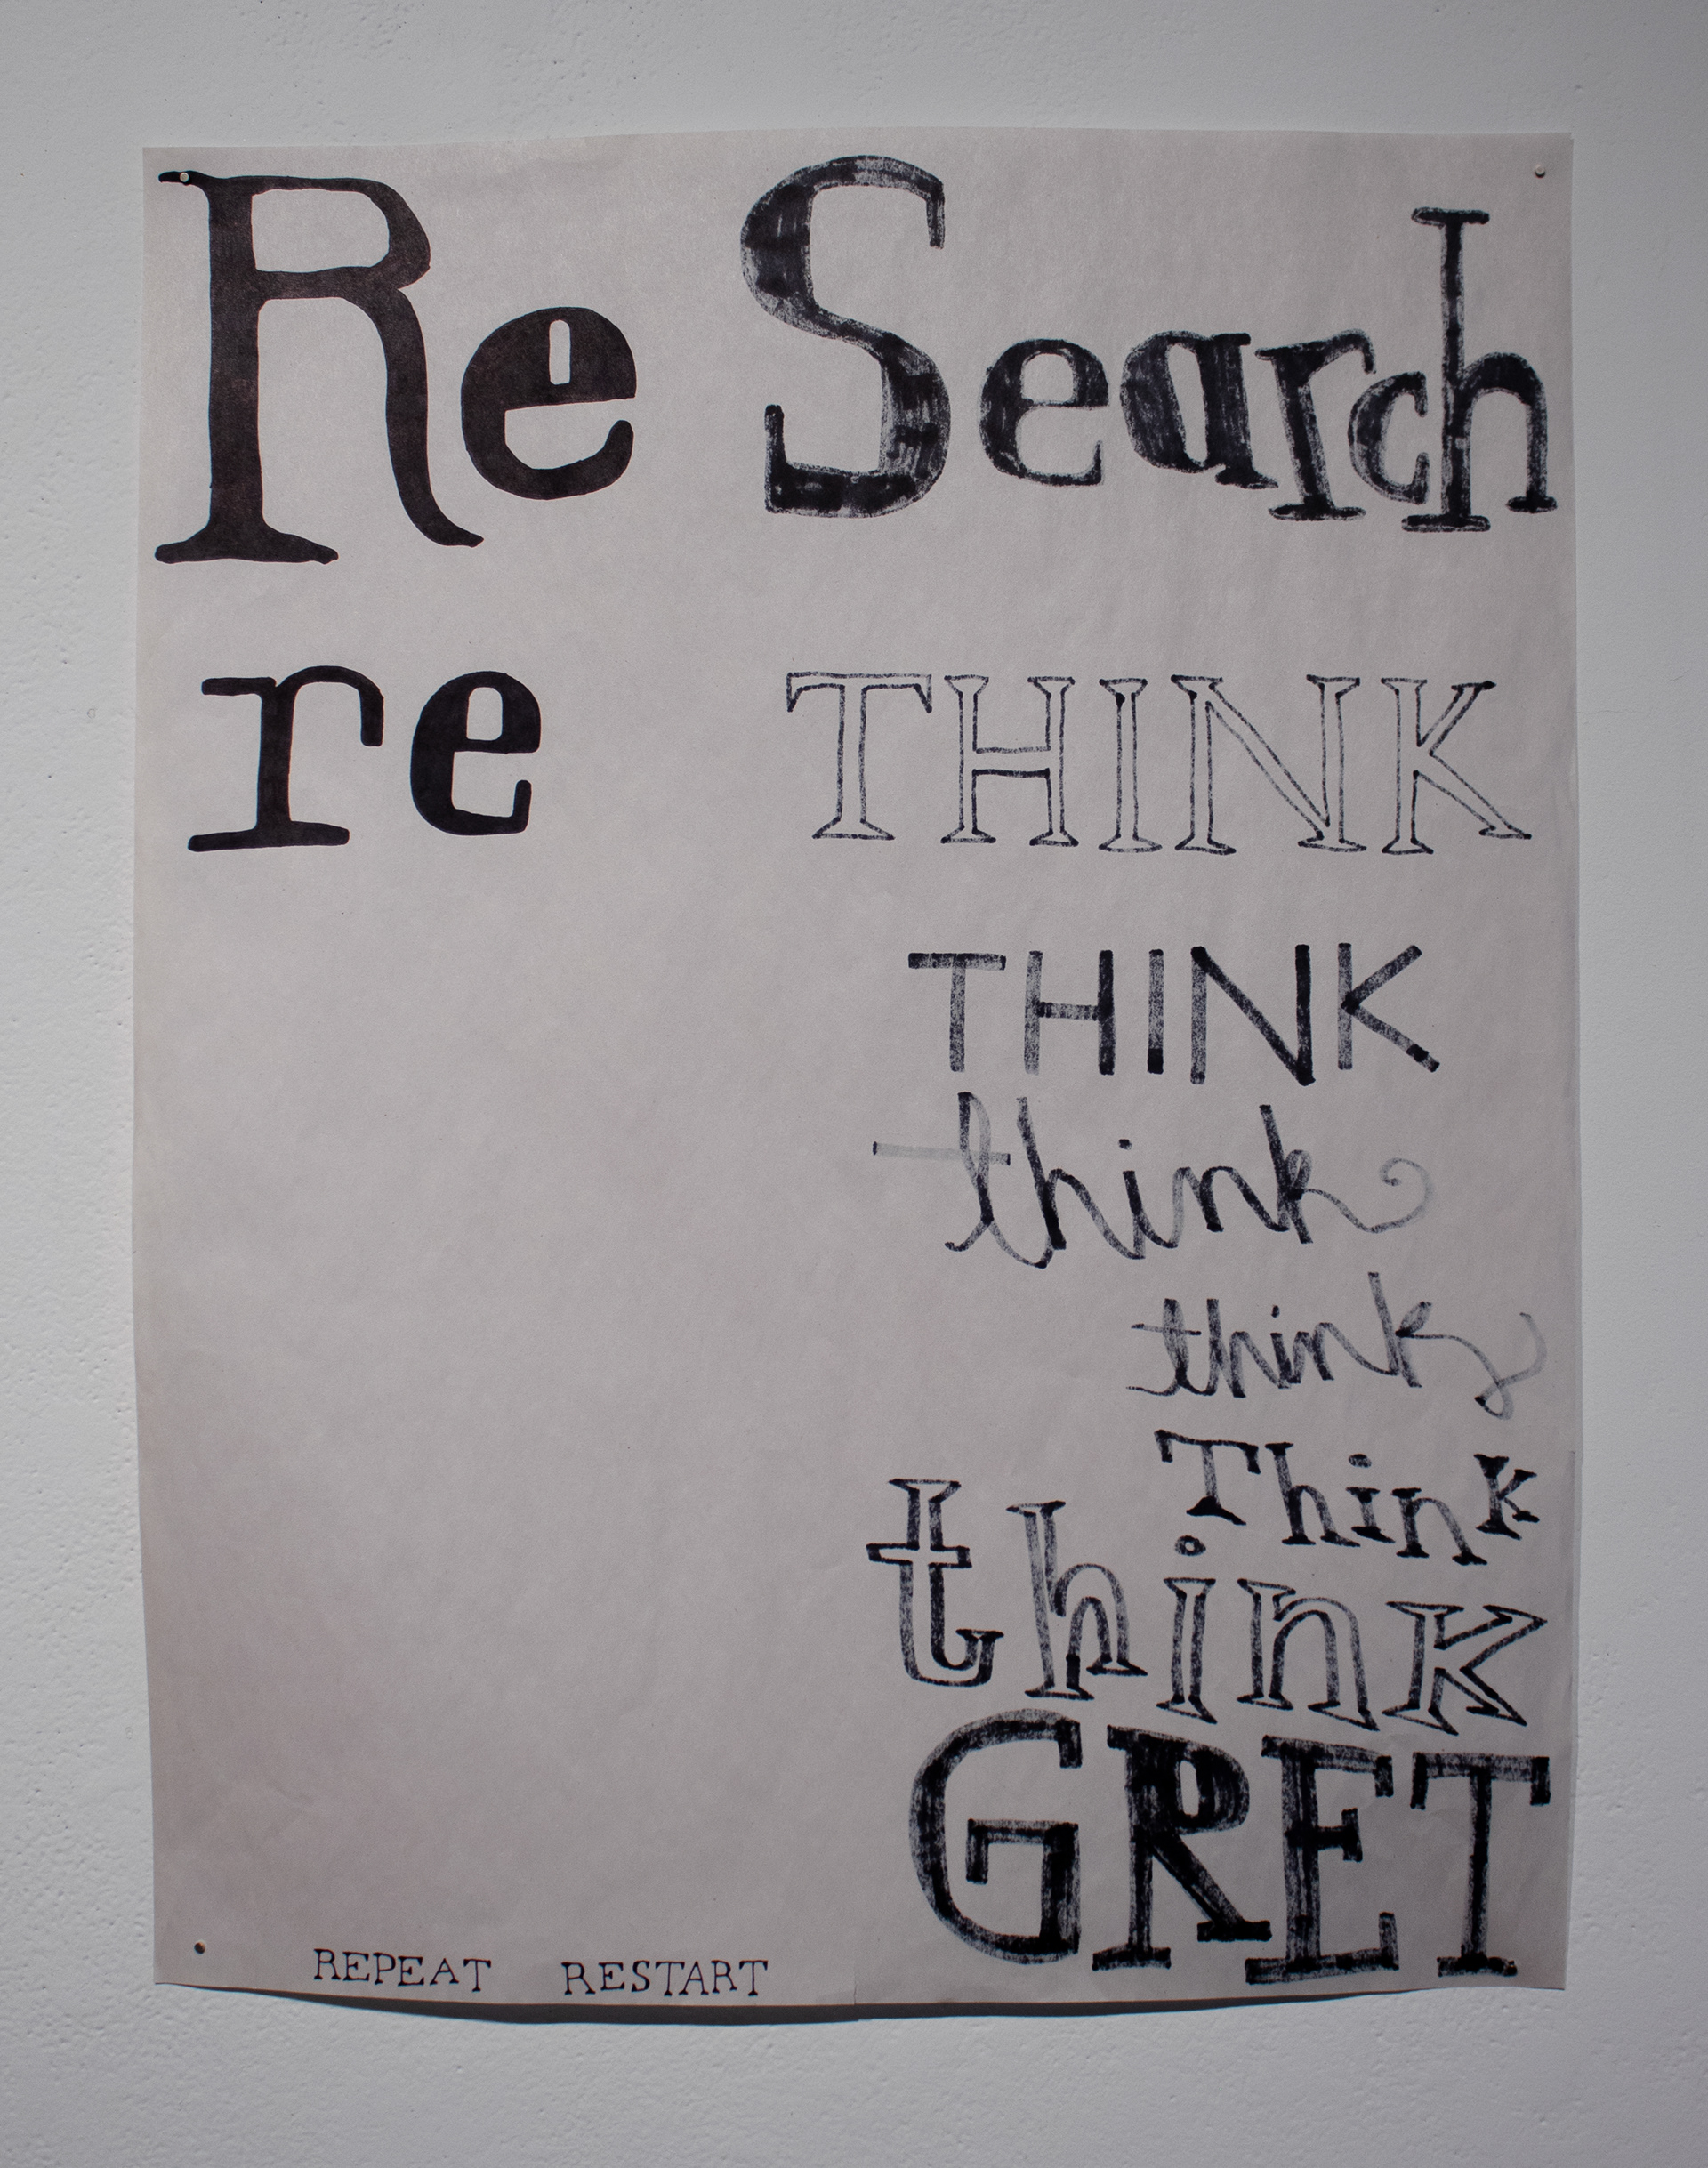 Re Search
re THINK
THINK
think
think
Think
think
GRET
REPEAT RESTART